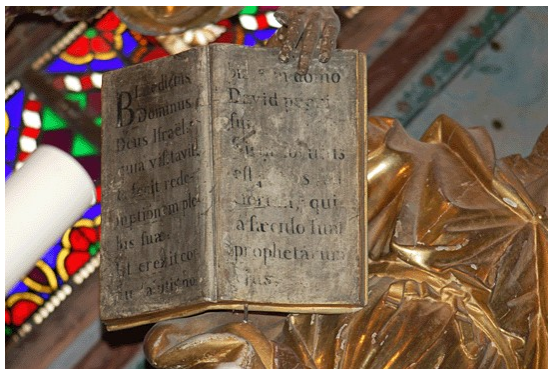 Benedictus
Dominus
Deus Israel:
quia visitavit
fecit rede-
mptionem ple
bis suæ:
Et erexit cor
nu salutis no
bis in domo
David pueri
sui
Sicut locutus
est
ctorum, qui
a sæculo sunt
prophetarum
ejus.